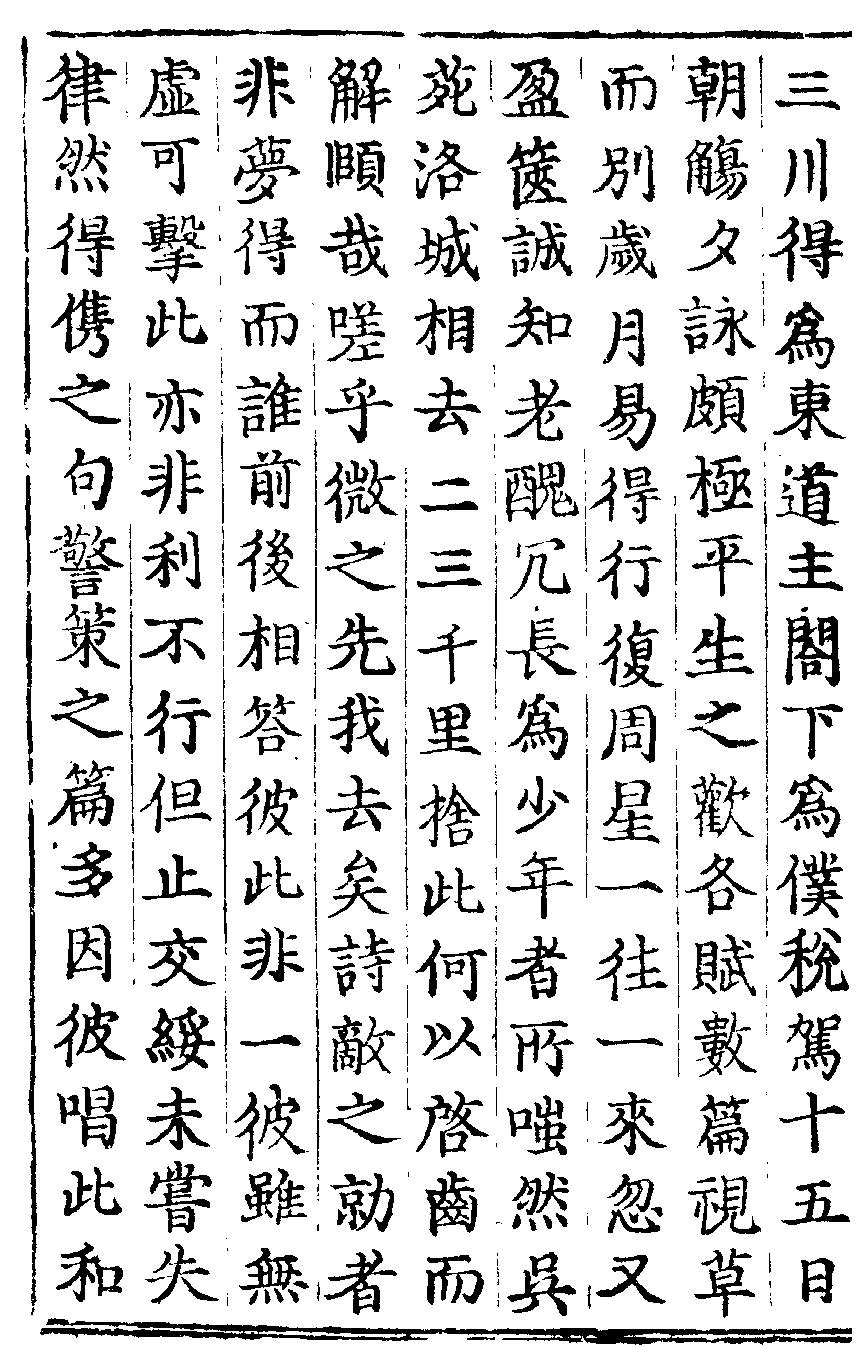 三川得爲東道主閤下爲僕稅駕十五日
朝觴夕詠頗極平生之歡各賦數篇視草
而別歲月易得行復周星一往一來忽又
盈篋誠知老醜冗長爲少年者所嗤然吳
苑洛城相去二三千里捨此何以啓齒而
解頤哉嗟乎微之先我去矣詩敵之勍者
非夢得而誰前後相答彼此非一彼雖無
虛可擊此亦非利不行但止交綏未嘗失
律然得儁之句警策之篇多因彼唱此和